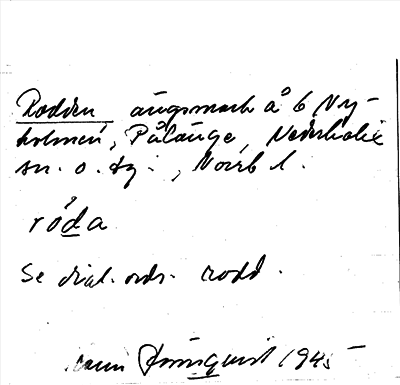 Rodden ängsmark å b Ny-
holmen, Pålänge, Nederkalix
sn. o. tg., Norrb l.
róda
se dial. ordr. rodd.
Dahlquist 1945